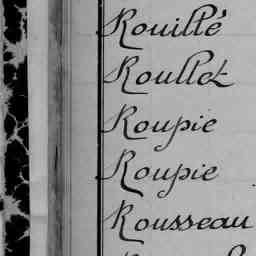 Rouillé
Roullet
Roupie
Roupie
Rousseau